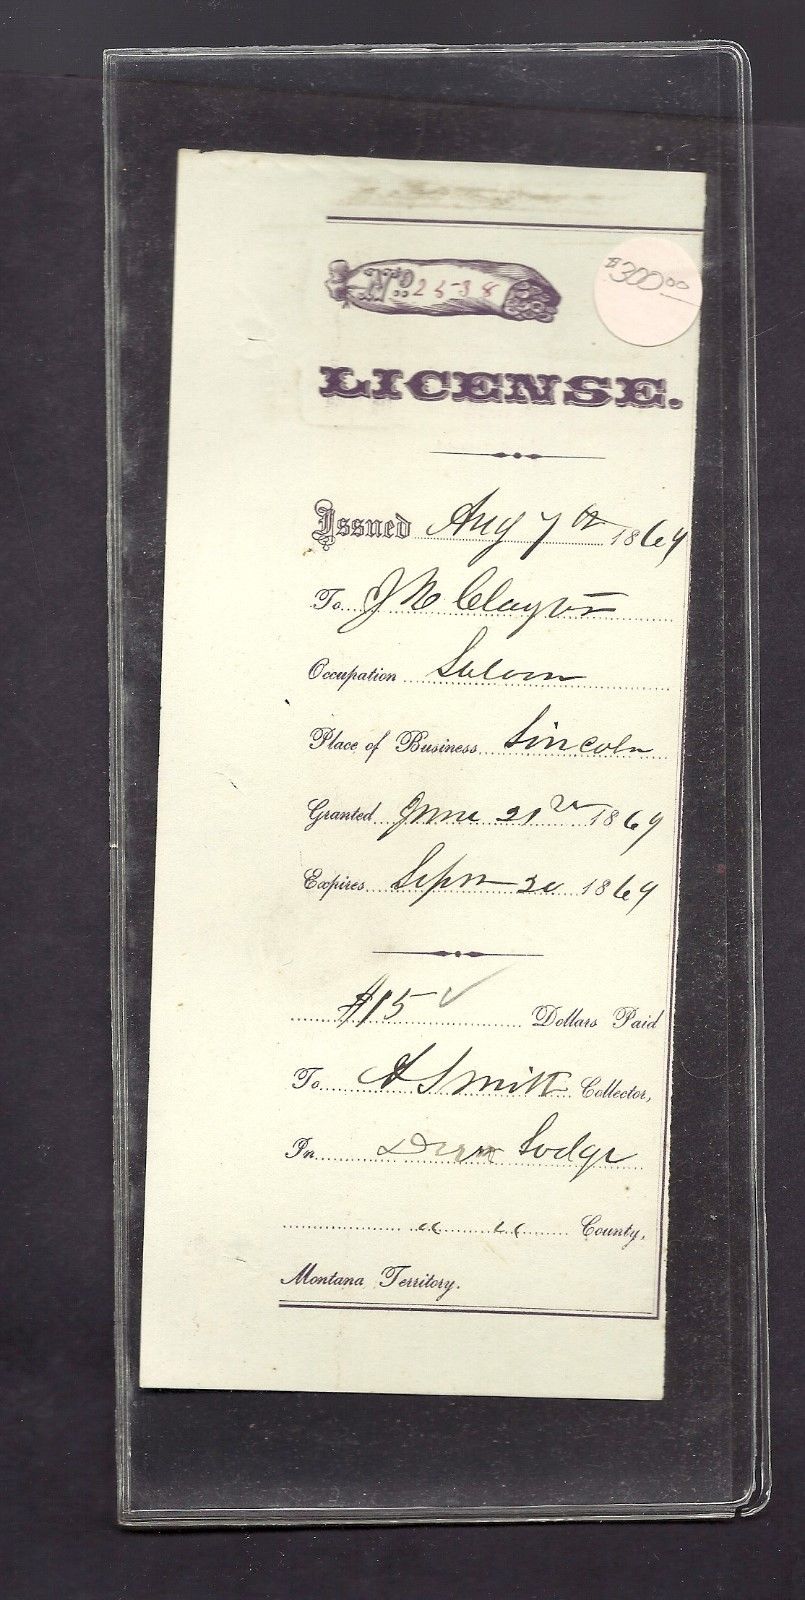 No. 2538
$300.00
LICENSE.
Issued Aug 7th 1869
To J N Clayton
Occupation Saloon
Place of Business Lincoln
Granted June 21st 1869
Expires Sepn 20 1869
$15 Dollars Paid
To A Smith Collector,
In Deer Lodge
" " County,
Montana Territory.